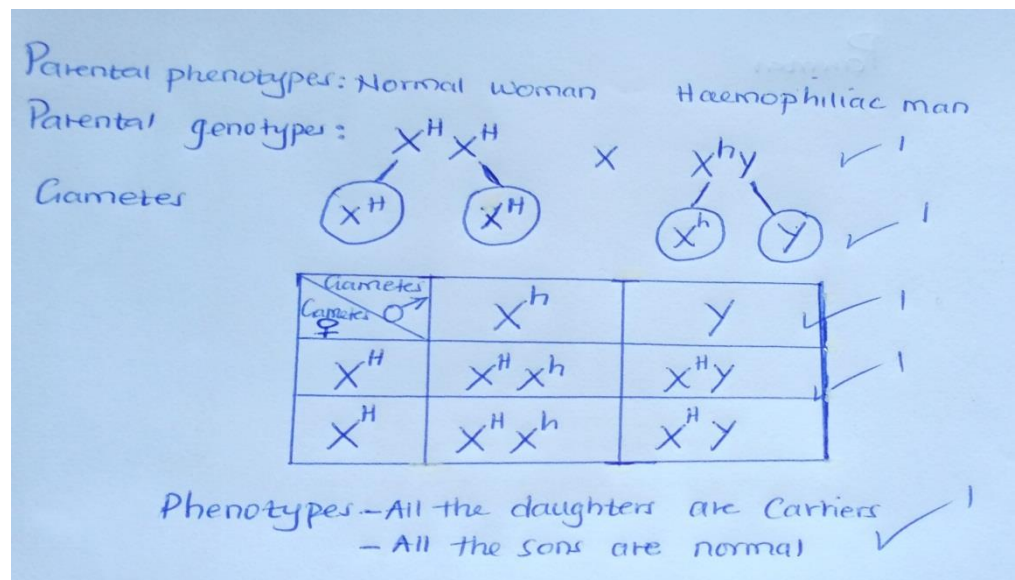 Parental phenotypes: Normal woman Haemophiliac man
Parental genotypes: X^H X^H x X^h y ✓ 1
Gametes X^H X^H X^h y ✓ 1
Gametes ♂
Gametes ♀ X^h y ✓ 1
X^H X^H X^h X^H y ✓ 1
X^H X^H X^h X^H y
Phenotypes - All the daughters are Carriers ✓ 1
- All the sons are normal